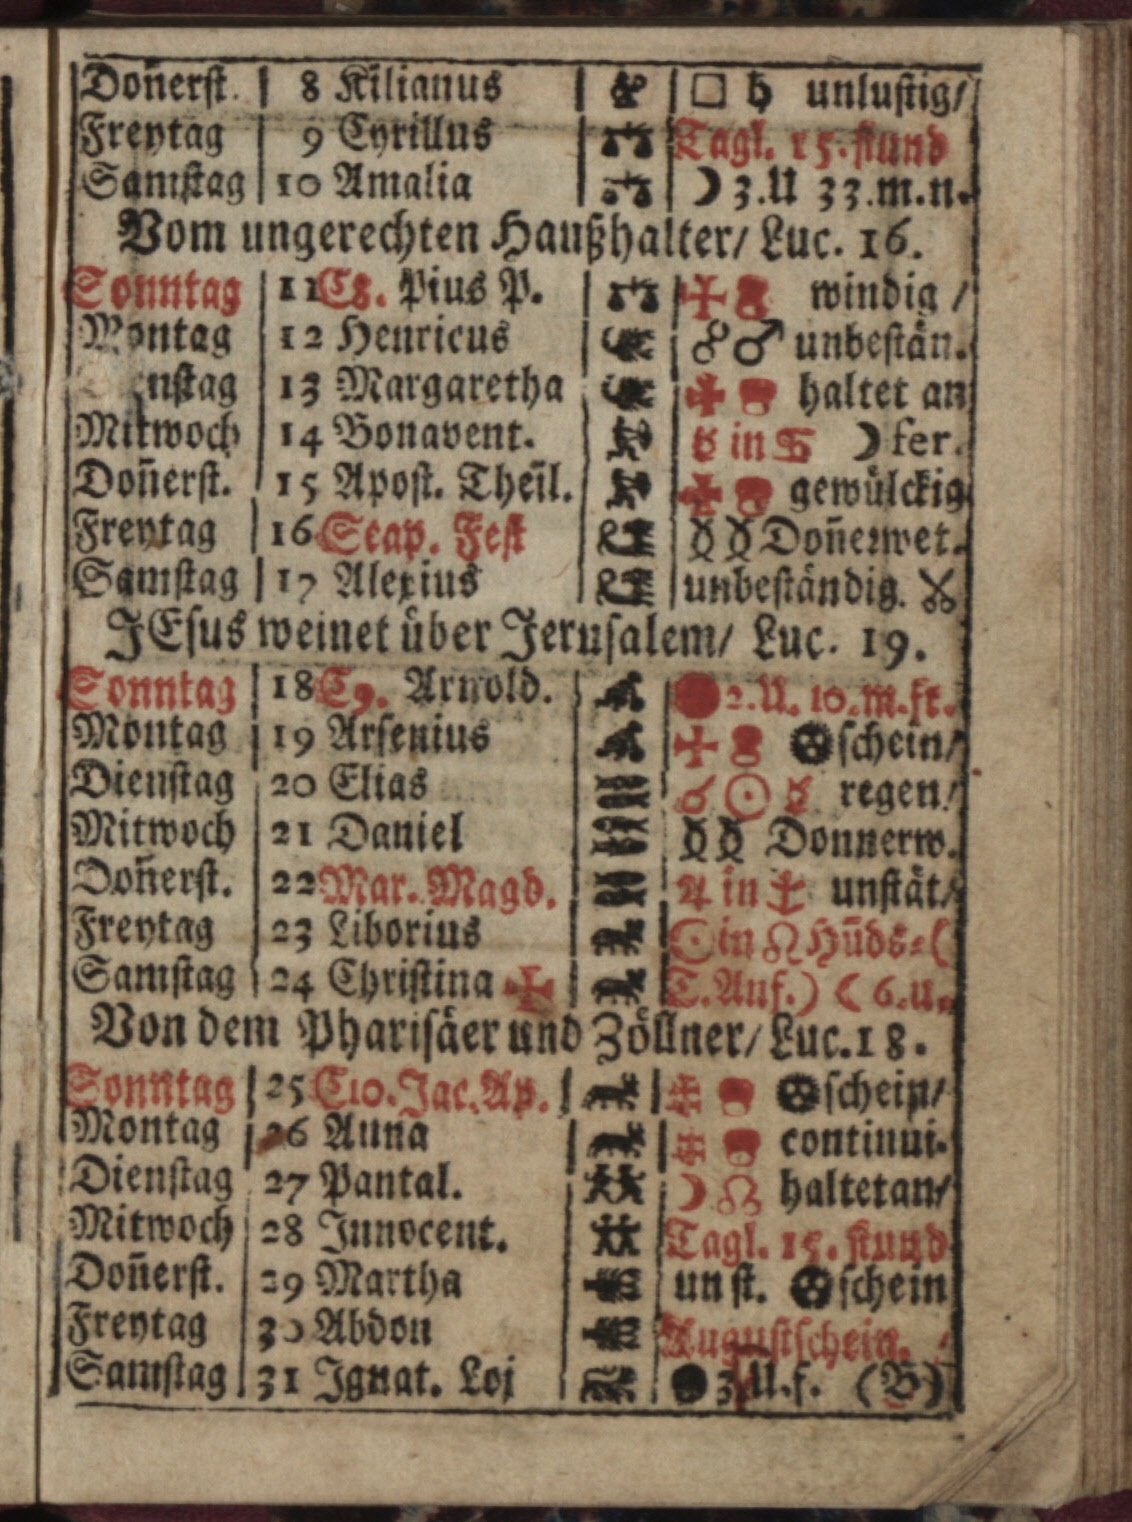 Doñerst. 8 Kilianus □ ♄ unlustig/
Freytag 9 Cyrillus Tagl. 15. stund
Samstag 10 Amalia ☽ 3.U 33.m.n.
Vom ungerechten Haußhalter/ Luc. 16.
Sonntag 11 C8. Pius P. windig /
Montag 12 Henricus ☍ ♂ unbestän.
nstag 13 Margaretha haltet an
Mitwoch 14 Bonavent. ☿ in ♋ ☽ fer.
Doñerst. 15 Apost. Theil. gewülckig
Freytag 16 Scap. Fest Doñerwet.
Samstag 17 Alexius unbeständig.
JEsus weinet über Jerusalem/ Luc. 19.
Sonntag 18 C9. Arnold. 2.U. 10.m.fr.
Montag 19 Arsenius schein/
Dienstag 20 Elias ☌ ☉ ☿ regen/
Mitwoch 21 Daniel Donnerw.
Doñerst. 22 Mar. Magd. ♃ in unstät/
Freytag 23 Liborius ☉ in ♌ Hũds=(
Samstag 24 Christina T.Anf.) ☾ 6.U.
Von dem Pharisäer und Zöllner/ Luc. 18.
Sonntag 25 C10. Jac. Ap. schein/
Montag 26 Anna continui.
Dienstag 27 Pantal. ☽ ☊ haltet an/
Mitwoch 28 Innocent. Tagl. 15. stund
Doñerst. 29 Martha unst. schein
Freytag 30 Abdon Augustschein.
Samstag 31 Ignat. Loj 3.U.f. (B)